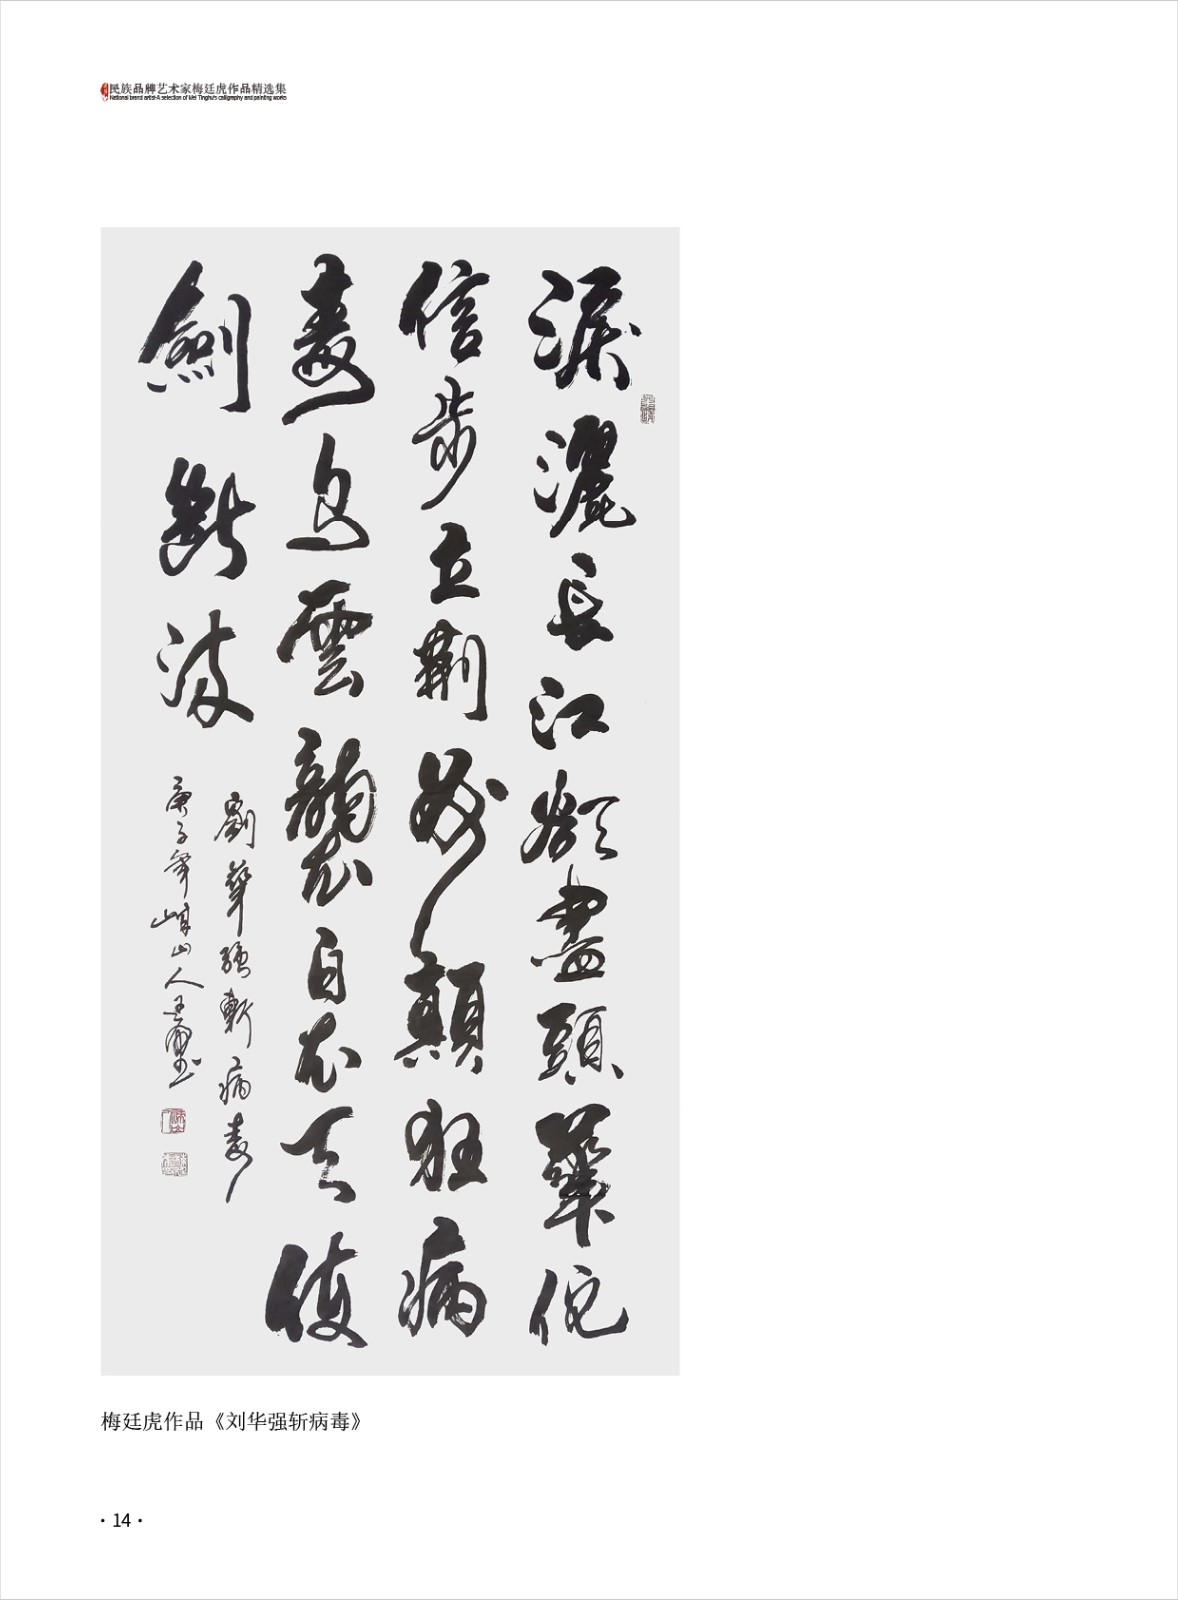 民族品牌艺术家梅廷虎作品精选集
National brand artist-A selection of Mei Tinghu's calligraphy and painting works
淚灑長江頭盡頭華佗
信步立荆 顛狂病
毒烏雲襲自在天
劍斷波
劉華強斬病毒
庚子年 山人
梅廷虎作品《刘华强斩病毒》
· 14 ·